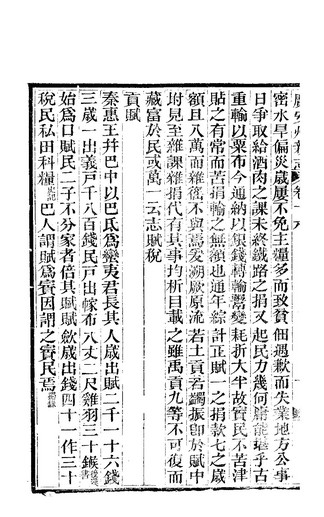 密水旱偏災歲屢不免主糧多而致貧佃遇歉而失業地方公事
日爭取給酒肉之課未終鐵路之捐又起民力幾何膺能堪乎古
重輸以粟布今通納以銀錢轉輸鬻變耗折大半故賨民不苦津
貼之有常而苦捐輸之無額也通年綜計正賦一之捐款七之歲
額且八萬而雜徭不與焉爰溯厥原流若土貢若蠲振卽於賦中
坿見至雜課雜捐代有其事均析目載之雖禹貢九等不可復而
藏富於民或萬一云志賦稅
貢賦
秦惠王幷巴中以巴氏爲蠻夷君長其人歲出賦二千一十六錢
三歲一出義戸千八百錢民戸出幏布八丈二尺雞羽三十鍭後漢書
始爲口賦民二子不分家者倍其賦賦歛歲出錢四十一作三十
稅民私田科糧史記巴人謂賦爲賨因謂之賨民焉